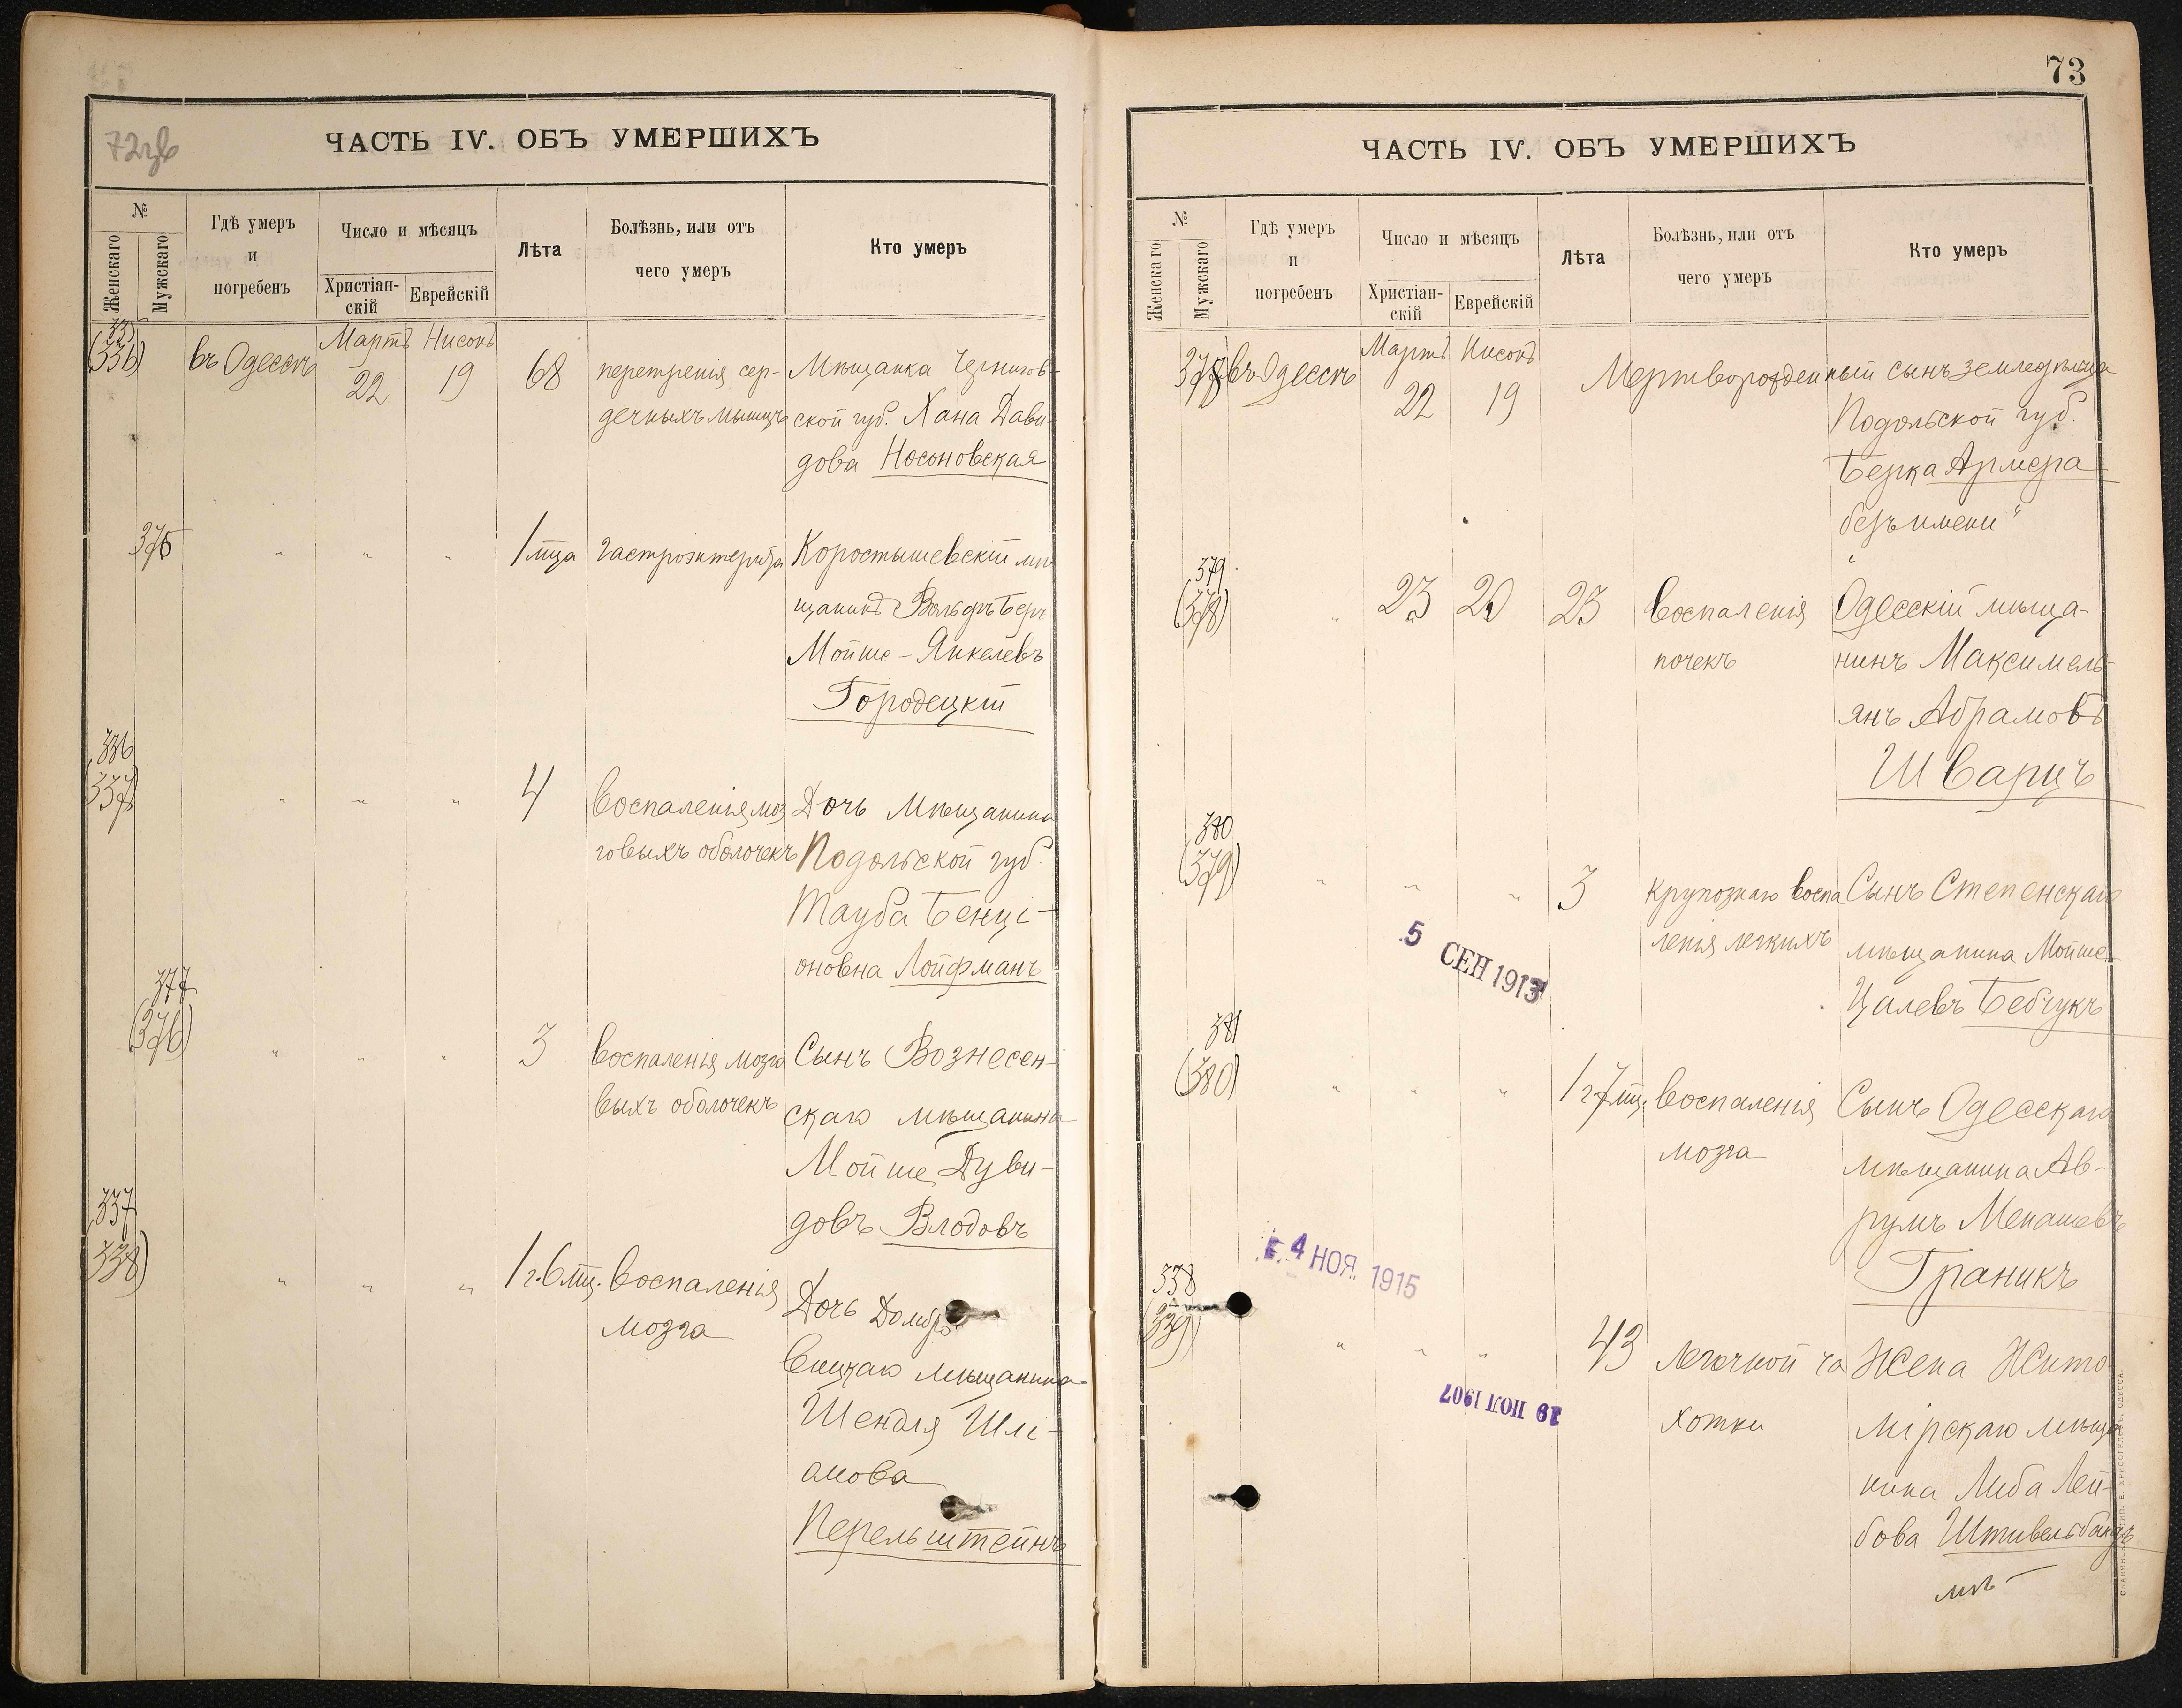 72зв
ЧАСТЬ IV. ОБЪ УМЕРШИХЪ
№
Женскаго
Мужскаго
Гдѣ умеръ
и
погребенъ
Число и мѣсяцъ
Христіан-
скій
Еврейскій
Лѣта
Болѣзнь, или отъ
чего умеръ
Кто умеръ
335
(336)
въ Одессѣ
Мартъ Нисонъ
22 19
68
сер-
дечныхъ мышцъ
Мѣщанка Чернигов-
ской губ. Хана Дави-
дова Носоновская
375
" " "
1 мца
гастроэнтерита
Коростышевскій мѣ
щанинъ Вольфъ Беръ
Мойше-Янкелевъ
Городецкій
336
(337)
" " "
4
воспаленія моз
говыхъ оболочекъ
Дочь Мѣщанина
Подольской губ.
Тауба Бенці-
оновна Лойфманъ
377
(376)
" " "
3
воспаленія мозго
выхъ оболочекъ
Сынъ Вознесен-
скаго мѣщанина
Мойше Дуви-
довъ Влодовъ
337
(338)
" " "
1 г. 6 мц.
воспаленія
мозга
Дочь Домбро
вицкаго мѣщанина
Шендля Шлі-
омова
Перельштейнъ
73
ЧАСТЬ IV. ОБЪ УМЕРШИХЪ
№
Женскаго
Мужскаго
Гдѣ умеръ
и
погребенъ
Число и мѣсяцъ
Христіан-
скій
Еврейскій
Лѣта
Болѣзнь, или отъ
чего умеръ
Кто умеръ
378
въ Одессѣ
Мартъ Нисонъ
22 19
Мертворожденный сынъ земледѣльца
Подольской губ.
Берка Армера
"безъ имени"
379
(378)
" 23 20
23
воспаленія
почекъ
Одесскій мѣща-
нинъ Максимель-
янъ Абрамовъ
Шварцъ
380
(379)
" " "
3
крупознаго воспа
ленія легкихъ
Сынъ Степенскаго
мѣщанина Мойше-
Цалевъ Бебчукъ
5 СЕН 1913
381
(380)
" " "
1 г. 7 мц.
воспаленія
мозга
Сынъ Одесскаго
мѣщанина Ав-
румъ Менашевъ
Граникъ
4 НОЯ. 1915
338
(339)
" " "
43
легочной ча
хотки
Жена Жито
мірскаго мѣща
нина Либа Лей-
бова Штивельбандъ
19 ІЮЛ 1907